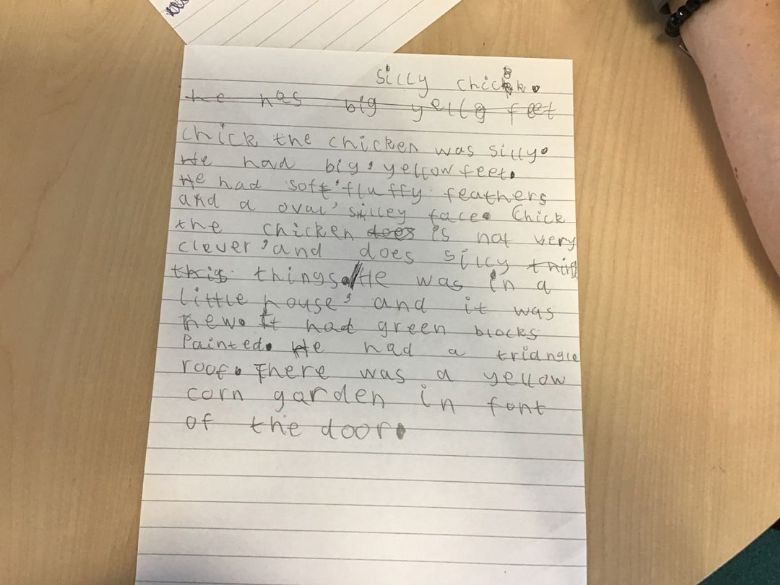 silly chick.
he has big yello feet
chick the chicken was silly.
He had big, yellow feet.
He had soft, fluffy feathers
and a oval, silley face. Chick
the chicken does is not very
clever, and does silly thing
this things. He was in a
little house, and it was
new. It had green blocks
Painted. He had a triangle
roof. There was a yellow
corn garden in font
of the door.